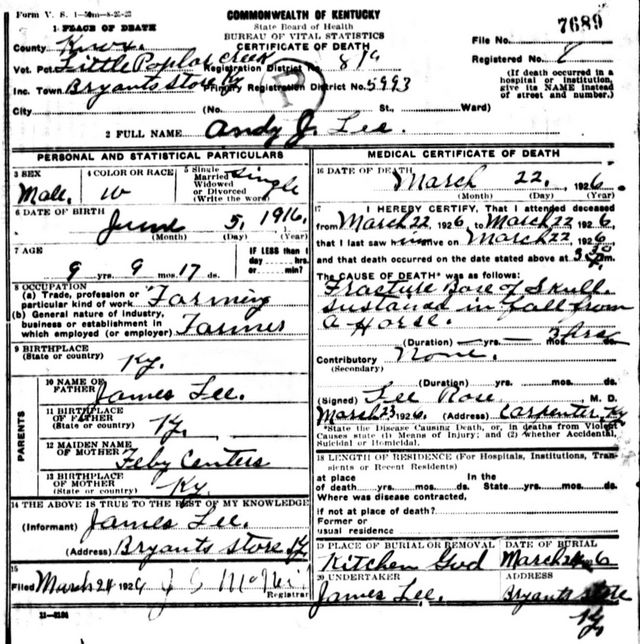 Form V. S. 1-50m-8-25-23
COMMONWEALTH OF KENTUCKY
State Board of Health
BUREAU OF VITAL STATISTICS
CERTIFICATE OF DEATH
7689
1 PLACE OF DEATH
County Knox
File No.
Vot. Pct. Little Poplar Creek Registration District No. 819
Registered No. 6
Inc. Town Bryants Store Ky Primary Registration District No. 5993
(If death occurred in a hospital or institution, give its NAME instead of street and number.)
City (No. St., Ward)
2 FULL NAME Andy J. Lee.
PERSONAL AND STATISTICAL PARTICULARS
3 SEX Male.
4 COLOR OR RACE W
5 Single Married Widowed or Divorced (Write the word) Single
6 DATE OF BIRTH June 5, 1916,
(Month) (Day) (Year)
7 AGE 9 yrs. 9 mos. 17 ds.
IF LESS than 1 day hrs. or min.
8 OCCUPATION
(a) Trade, profession or particular kind of work Farming
(b) General nature of industry, business or establishment in which employed (or employer) Farmer
9 BIRTHPLACE
(State or country) Ky.
PARENTS
10 NAME OF FATHER James Lee.
11 BIRTHPLACE OF FATHER
(State or country) Ky.
12 MAIDEN NAME OF MOTHER Feby Centers
13 BIRTHPLACE OF MOTHER
(State or country) Ky.
14 THE ABOVE IS TRUE TO THE BEST OF MY KNOWLEDGE
(Informant) James Lee.
(Address) Bryants Store Ky
15
Filed March 24 1926
Registrar
21-8194
MEDICAL CERTIFICATE OF DEATH
16 DATE OF DEATH March 22, 1926
(Month) (Day) (Year)
17 I HEREBY CERTIFY, That I attended deceased
from March 22 1926, to March 22 1926,
that I last saw him alive on March 22 1926,
and that death occurred on the date stated above at 3 30 P.m.
The CAUSE OF DEATH* was as follows:
Fracture Base of Skull.
sustained in fall from
a Horse.
(Duration) yrs. mos. 3 hrs ds.
Contributory None.
(Secondary)
(Duration) yrs. mos. ds.
(Signed) Lee Rose M. D.
March 23 1926 (Address) Carpenter, Ky
*State the Disease Causing Death, or, in deaths from Violent
Causes state (1) Means of Injury; and (2) whether Accidental,
Suicidal or Homicidal.
18 LENGTH OF RESIDENCE (For Hospitals, Institutions, Transients or Recent Residents)
at place of death yrs. mos. ds. In the State yrs. mos. ds.
Where was disease contracted,
if not at place of death?
Former or
usual residence
19 PLACE OF BURIAL OR REMOVAL Kitchen Gvd
DATE OF BURIAL March 24 26
20 UNDERTAKER James Lee.
ADDRESS Bryants Store
Ky.